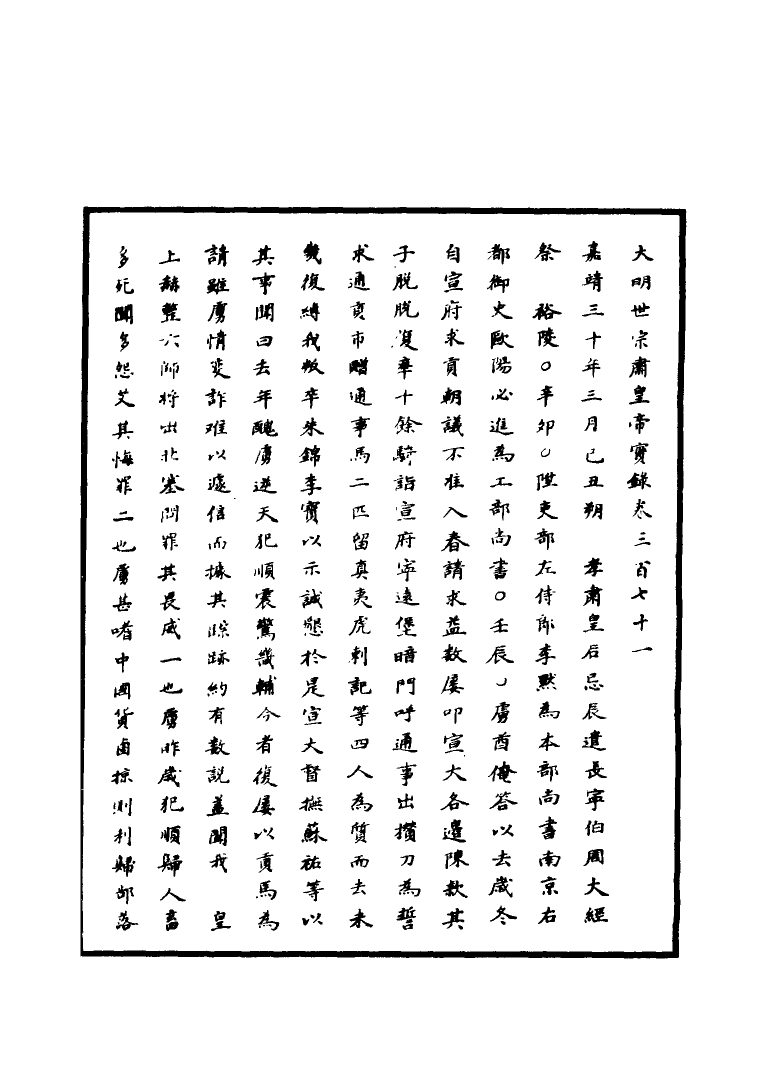 大明世宗肅皇帝實錄卷三百七十一
嘉靖三十年三月己丑朔　孝肅皇后忌辰遣長寧伯周大經
祭　裕陵○辛卯○陞吏部左侍郎李默為本部尚書南京右
都御史歐陽必進為工部尚書○壬辰○虜酋俺答以去歲冬
自宣府求貢朝議不准入春請求益数屡叩宣大各邊陳款其
子脫脫復率十餘騎詣宣府寧遠堡暗門呼通事出攢刀為誓
求通貢市贈通事馬二匹留真夷虎剌記等四人為質而去未
幾復縛我叛卒朱錦李寳以示誠懇於是宣大督撫蘇祐等以
其事聞曰去年醜虜逆天犯順震驚畿輔今者復屡以貢馬為
請雖虜情変詐难以遽信而據其踪跡約有数説蓋聞我　皇
上赫整六師将出北塞問罪其畏威一也虜昨歲犯順歸人畜
多死聞多怨艾其悔罪二也虜甚嗜中國貨鹵掠則利歸部落